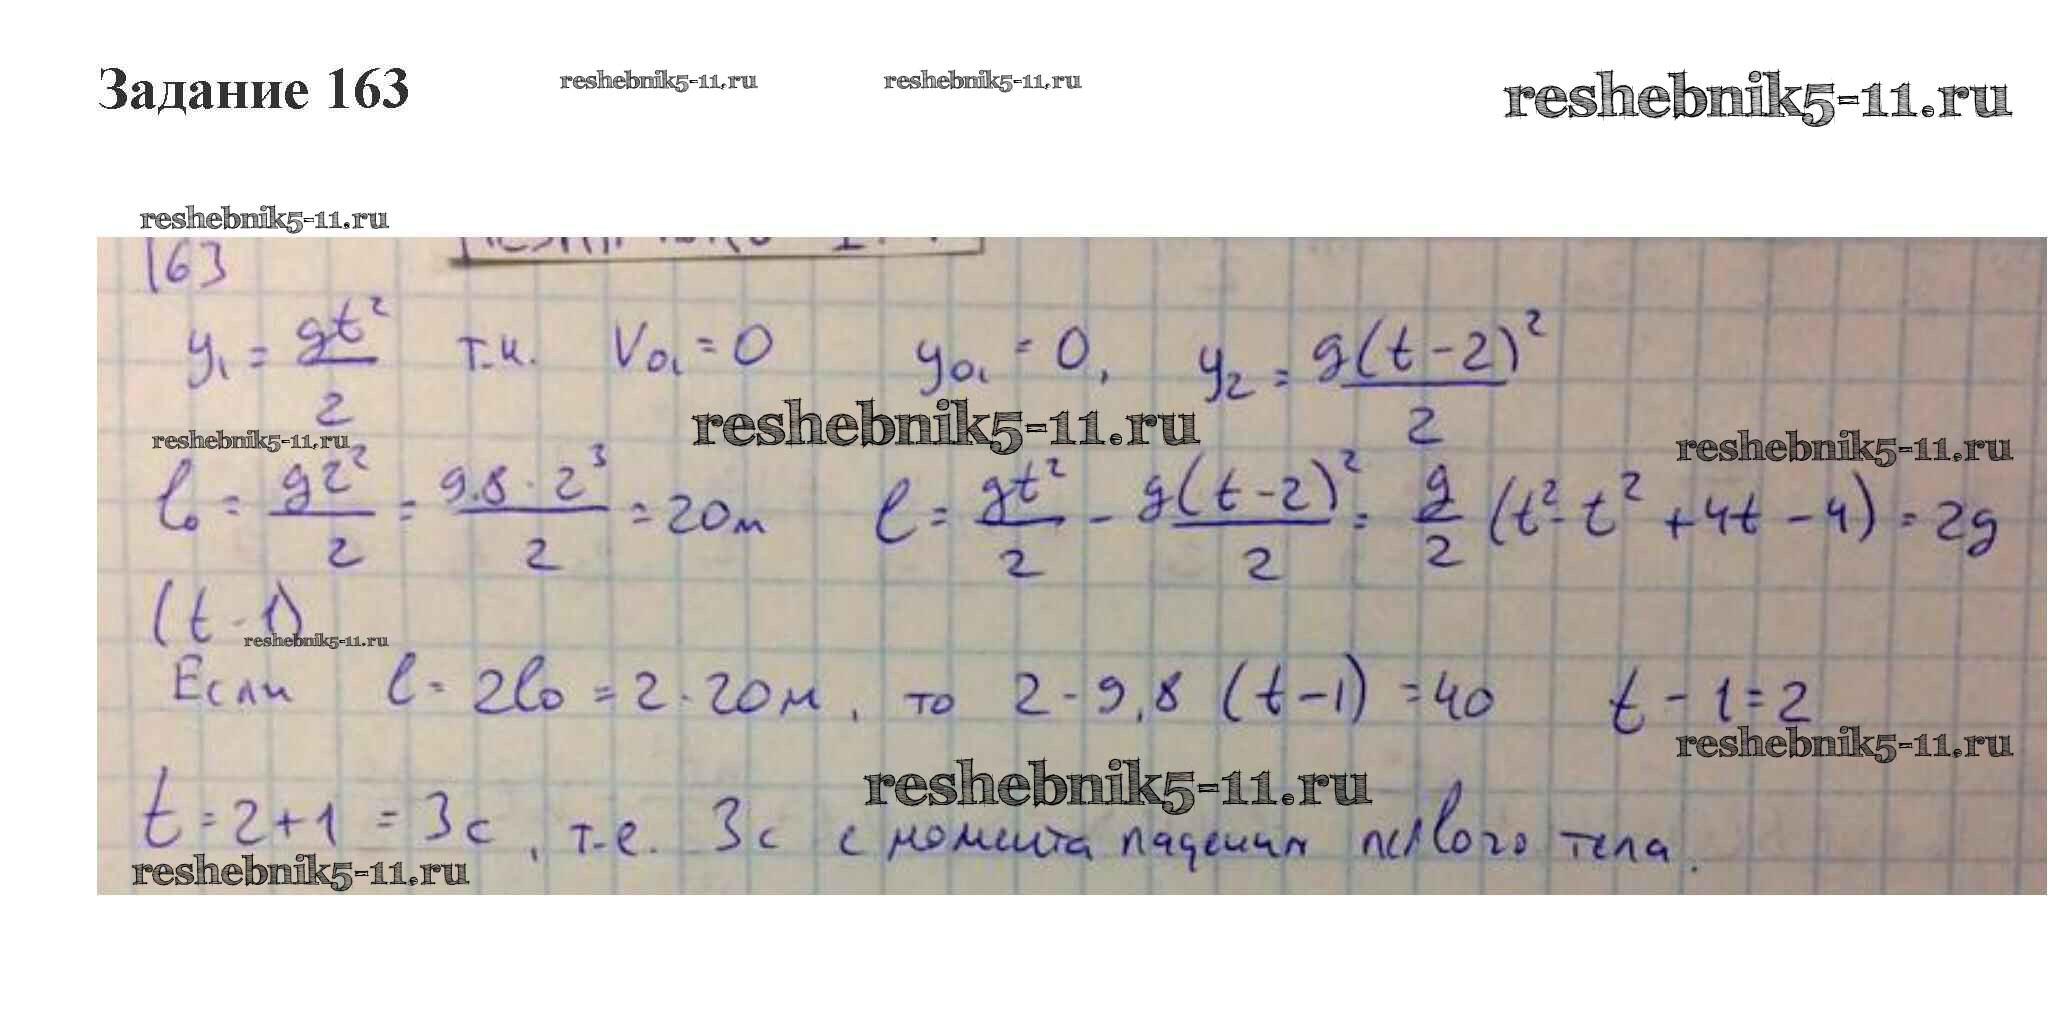 Задание 163 reshebnik5-11.ru reshebnik5-11.ru reshebnik5-11.ru
reshebnik5-11.ru
163
y₁ = gt²/2 т.к. V₀₁ = 0 y₀₁ = 0, y₂ = g(t-2)²/2
reshebnik5-11.ru reshebnik5-11.ru reshebnik5-11.ru
l₀ = g2²/2 = 9.8 · 2³/2 = 20м l = gt²/2 - g(t-2)²/2 = g/2 (t² - t² + 4t - 4) = 2g
(t-1)
reshebnik5-11.ru
Если l = 2l₀ = 2·20м, то 2-9,8 (t-1) = 40 t-1=2
reshebnik5-11.ru
reshebnik5-11.ru
t = 2+1 = 3с, т.е. 3с с момента падения первого тела.
reshebnik5-11.ru